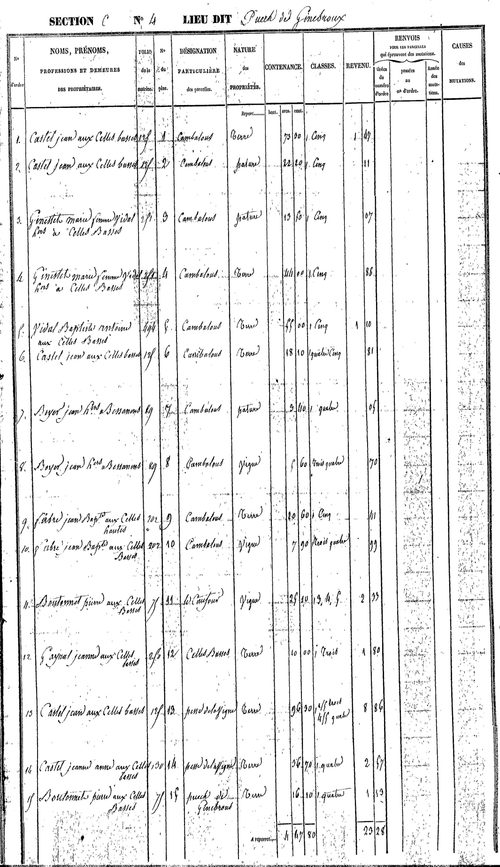 SECTION C N° 4 LIEU DIT Puech de Ginebroux
N° d'ordre
NOMS, PRÉNOMS,
PROFESSIONS ET DEMEURES
DES PROPRIÉTAIRES.
FOLIO de la matrice.
N° du plan.
DÉSIGNATION
PARTICULIÈRE
des parcelles.
NATURE
des
PROPRIÉTÉS.
CONTENANCE.
CLASSES.
REVENU.
RENVOIS
POUR LES PARCELLES
qui éprouvent des mutations.
CAUSES
des
MUTATIONS.
Report
hect. ares. cent.
1. Castel jean aux Celles basses 125 1 Cambalous Terre 73 30 1 Cinq 1 47
2. Castel jean aux Celles basses 125 2 Cambalous pature 22 20 1 Cinq 11
3. Ginestet marie femme Vidal 3 Cambalous pature 13 50 1 Cinq 07
hers de Celles Basses
4. Ginestet marie femme Vidal 4 Cambalous Terre 44 00 1 Cinq 88
hers a Celles Basses
5. Vidal Baptiste antoine 5 Cambalous Terre 55 00 1 Cinq 1 10
aux Celles Basses
6. Castel jean aux Celles basses 125 6 Cambalous Terre 18 10 quatre Cinq 81
7. Boyer jean hers a Bessanons 89 7 Cambalous pature 3 40 1 quatre 05
8. Boyer jean hers a Bessanons 89 8 Cambalous Vigne 5 60 trois quatre 70
9. Fabre jean Bapte aux Celles 202 9 Cambalous Terre 20 60 1 Cinq 41
hautes
10. Fabre jean Bapte aux Celles 202 10 Cambalous Vigne 7 90 trois quatre 99
Basses
11. Boutonnet pierre aux Celles 75 11 Vigne 25 3, 4, 5 2 33
Basses
12. jeanne aux Celles 12 Celles Basses Terre 10 00 1 Trois 1 80
basses
13 Castel jean aux Celles basses 125 13 pesse de la Vigne Terre 96 30 8 86
14 Castel jeanne anne aux Celles 130 14 pesse de la Vigne Terre 36 70 1 quatre 2 57
basses
15 Boutonnet pierre aux Celles 75 15 puech de Terre 16 10 1 quatre 1 13
Basses Ginebrous
A reporter 4 47 80 23 28